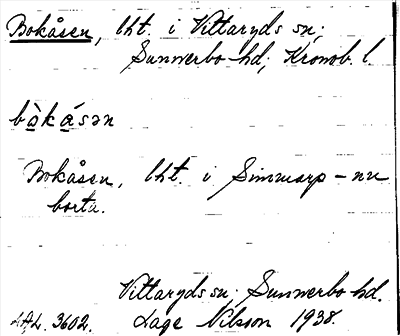 Bokåsen, lht. i Vittaryds sn;
Sunnerbo hd; Kronob. l.
bòkásən
Bokåsen, lht. i Simmarp - nu
borta.
Vittaryds sn; Sunnerbo hd.
LAL. 3602. Lage Nilsson 1938.